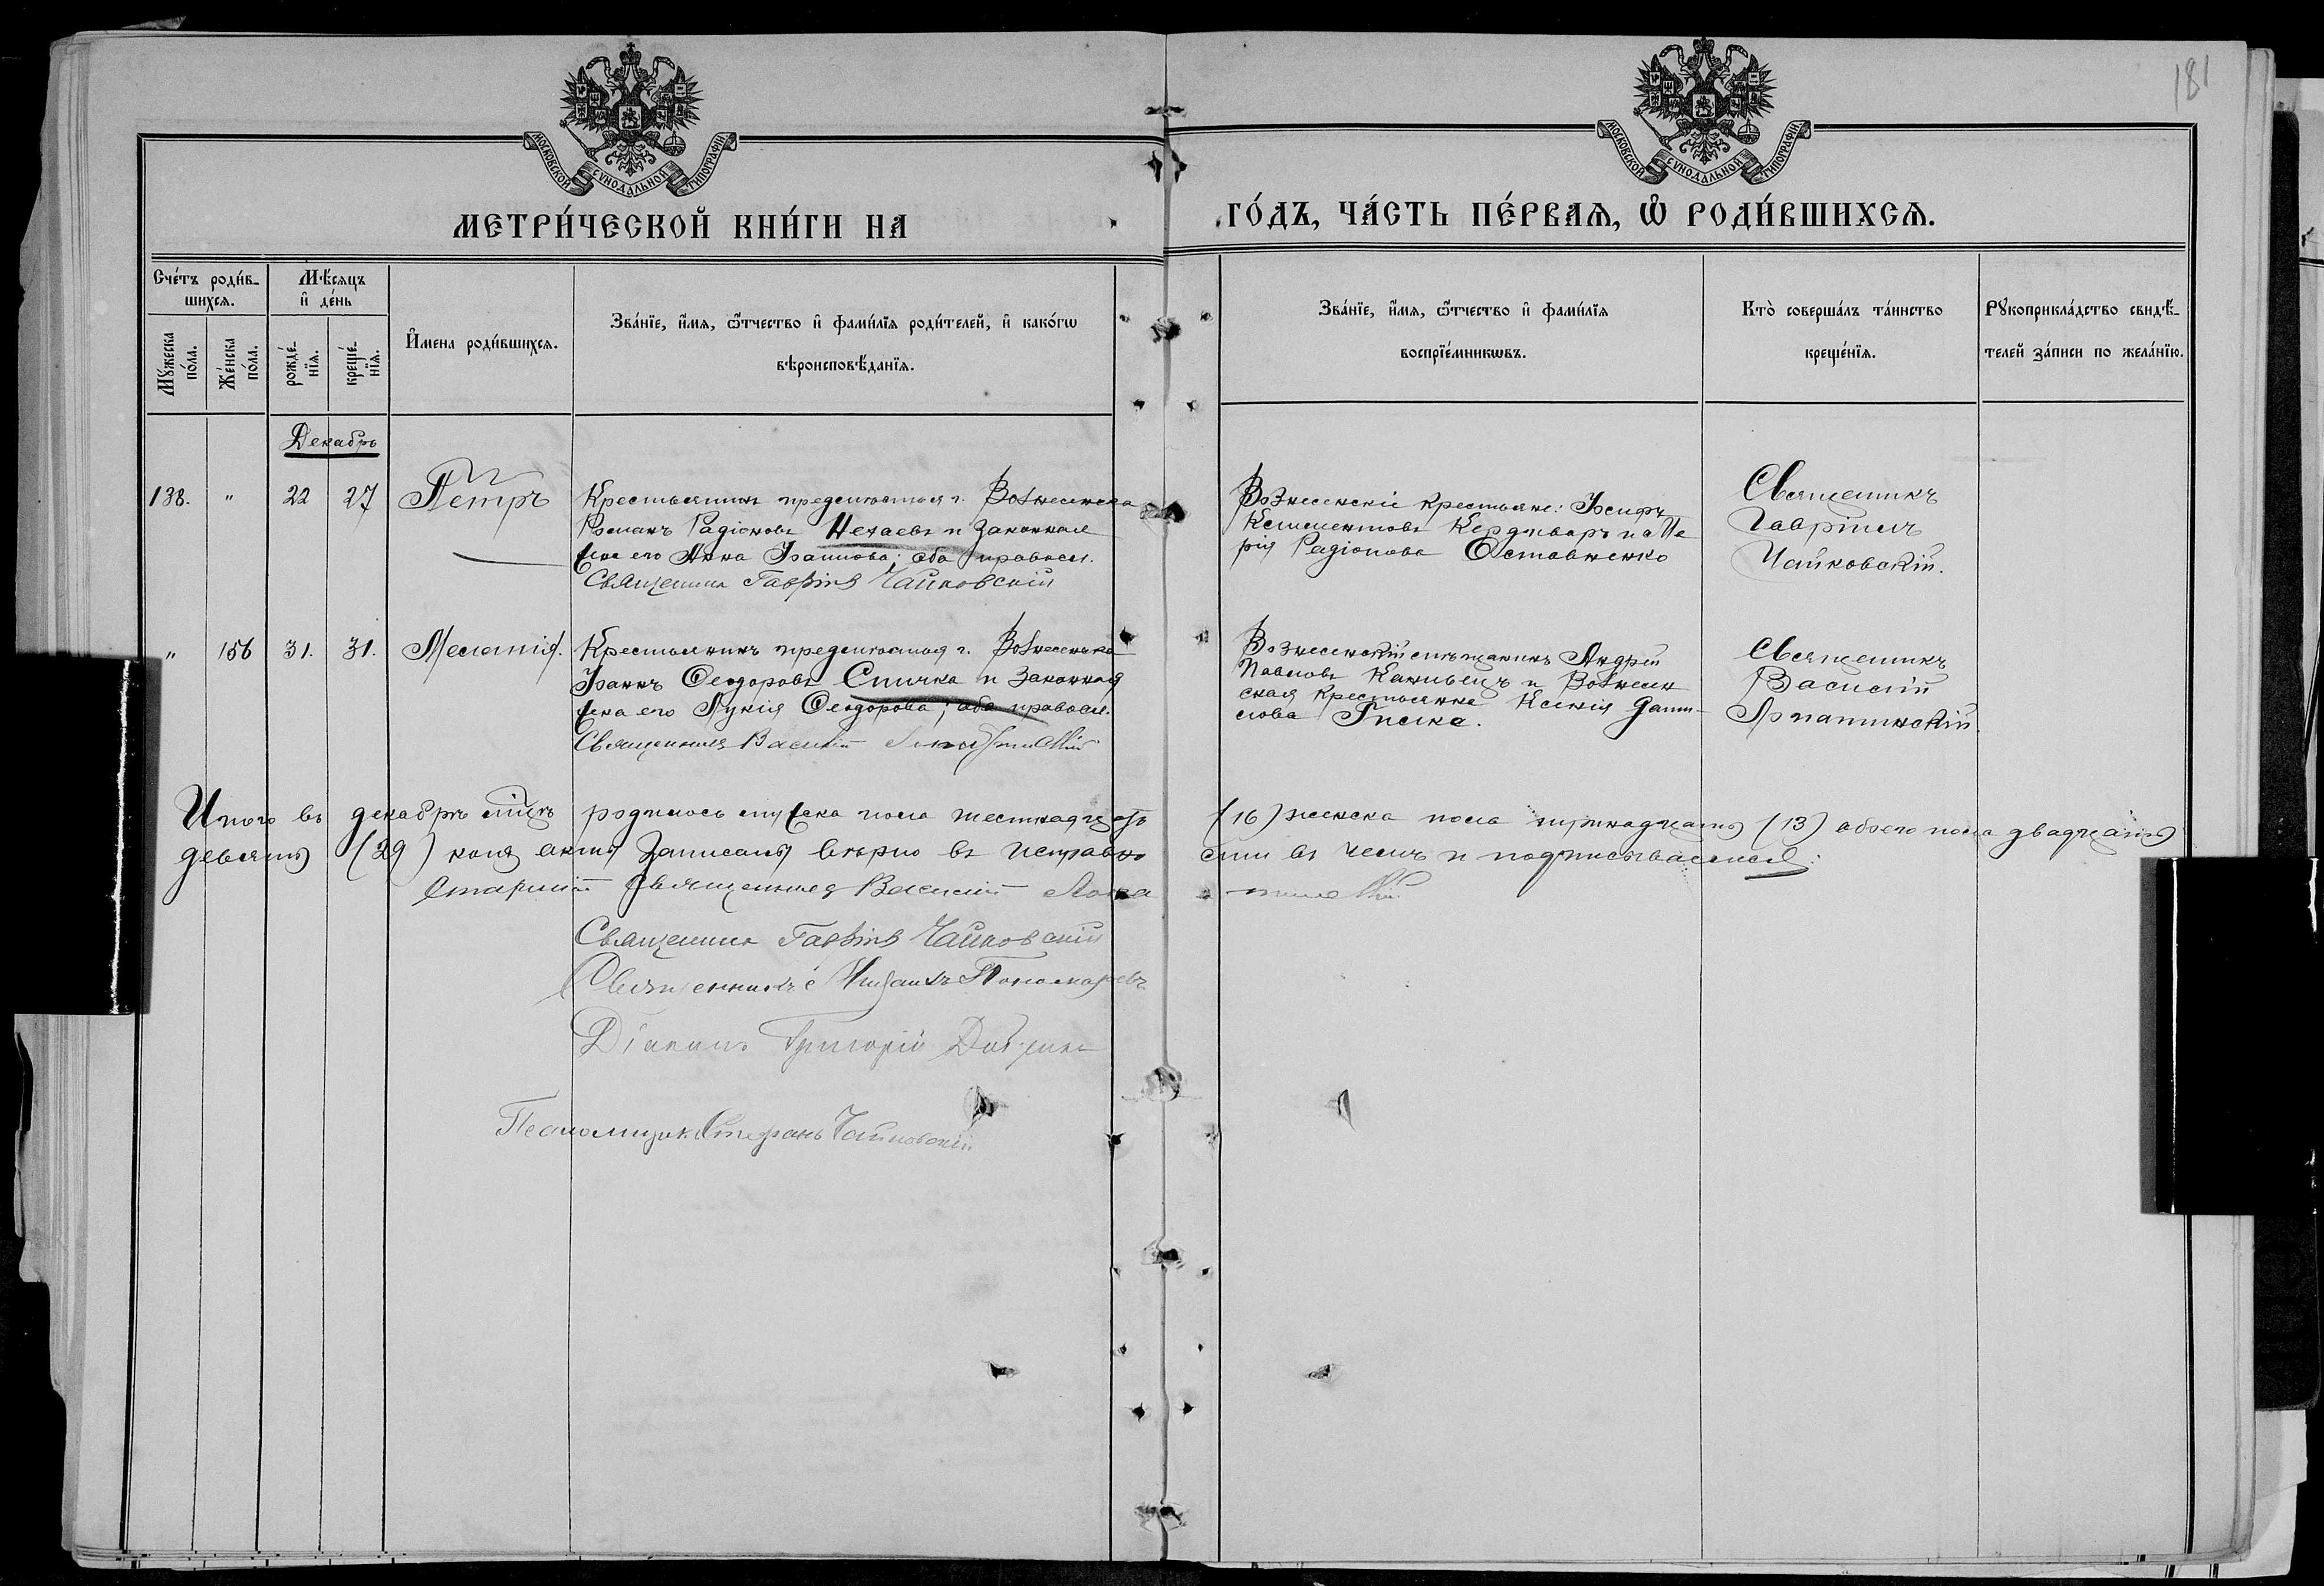 181
МОСКОВСКОЙ СѴНОДАЛЬНОЙ ТИПОГРАФІИ
МОСКОВСКОЙ СѴНОДАЛЬНОЙ ТИПОГРАФІИ
МЕТРИ́ЧЕСКОЙ КНИ́ГИ НА
ГО́ДЪ, ЧА́СТЬ ПЕ́РВАѦ, Ѽ РОДИ́ВШИХСѦ.
Сче́тъ роди́в-
шихсѧ.
Мꙋ́жеска по́ла.
Же́нска по́ла.
Мѣ́сѧцъ
и҆ де́нь
рожде́-нїѧ.
креще́-нїѧ.
И҆мена роди́вшихсѧ.
Зва́нїе, и҆́мѧ, ѻ҆́тчество и҆ фами́лїѧ роди́телей, и҆ како́гѡ
вѣроисповѣ́данїѧ.
Зва́нїе, и҆́мѧ, ѻ҆́тчество и҆ фами́лїѧ
воспрїе́мникѡвъ.
Кто̀ соверша́лъ та́инство
креще́нїѧ.
Рꙋкоприкла́дство свидѣ́-
телей за́писи по жела́нїю.
Декабрь
138. " 22 27 Петръ
Крестьянинъ предмѣстья г. Вознесенска
Романъ Радіоновъ Нечаевъ и законная
жена его Анна Іоаннова; оба правосл.
Священник Гавріилъ Чайковскій
Вознесенскіе крестьяне: Іосифъ
Климентовъ Кердиваръ и Ма
рія Радіонова Оставненко
Священникъ
Гавріилъ
Чайковскій.
" 156 31. 31. Меланія.
Крестьянинъ предмѣстья г. Вознесенска
Іоаннъ Ѳеодоровъ Спичка и законная
жена его Лукія Ѳеодорова; оба правосл.
Священникъ Василій
Вознесенскій мѣщанинъ Андрей
Павловъ Канивецъ и Вознесен
ская крестьянка Ксенія Дани-
лова
Священникъ
Василій
Лопатинскій.
Итого въ декабрѣ мѣцѣ родилось мужеска пола шестнадцать (16) женска пола тринадцать (13) обоего пола двадцать
девять (29) коихъ акты записаны вѣрно въ чемъ и подписываемся:
Старшій Священникъ Василій Лопатинскій
Священник Гавріилъ Чайковскій
Священникъ Пономаревъ
Діаконъ Григорій
Псаломщик Стефанъ Чайковскій